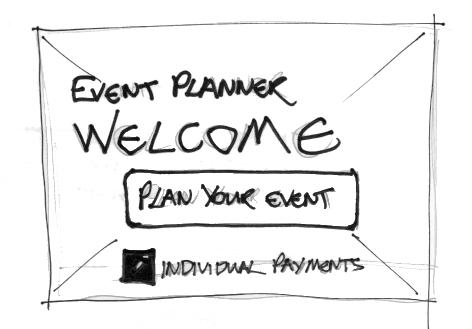 EVENT PLANNER
WELCOME
PLAN YOUR EVENT
INDIVIDUAL PAYMENTS